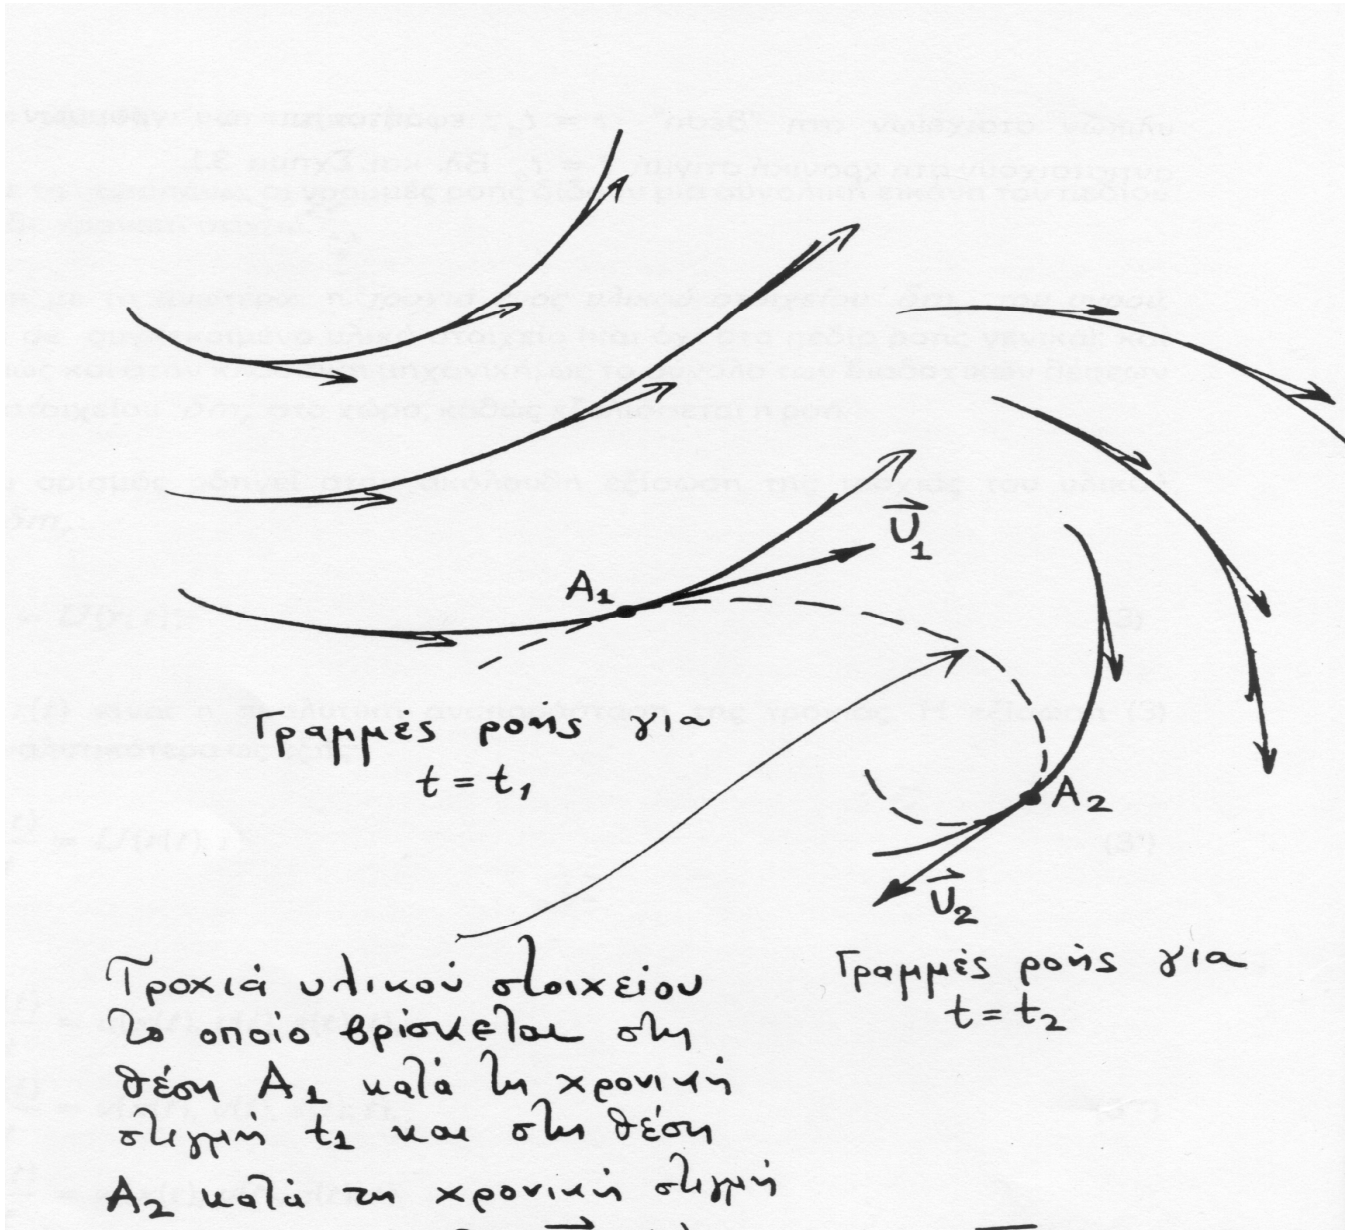 U⃗₁
A₁
Γραμμές ροής για
t = t₁
A₂
U⃗₂
Γραμμές ροής για
t = t₂
Τροχιά υλικού στοιχείου
το οποίο βρίσκεται στη
θέση A₁ κατά τη χρονική
στιγμή t₁ και στη θέση
A₂ κατά τη χρονική στιγμή